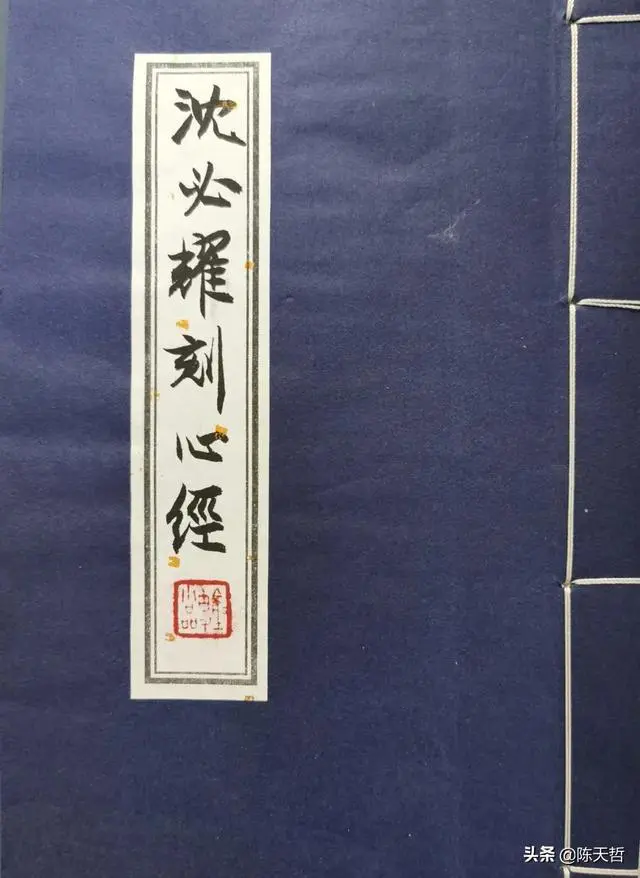 沈必耀刻心經
头条 @陈天哲